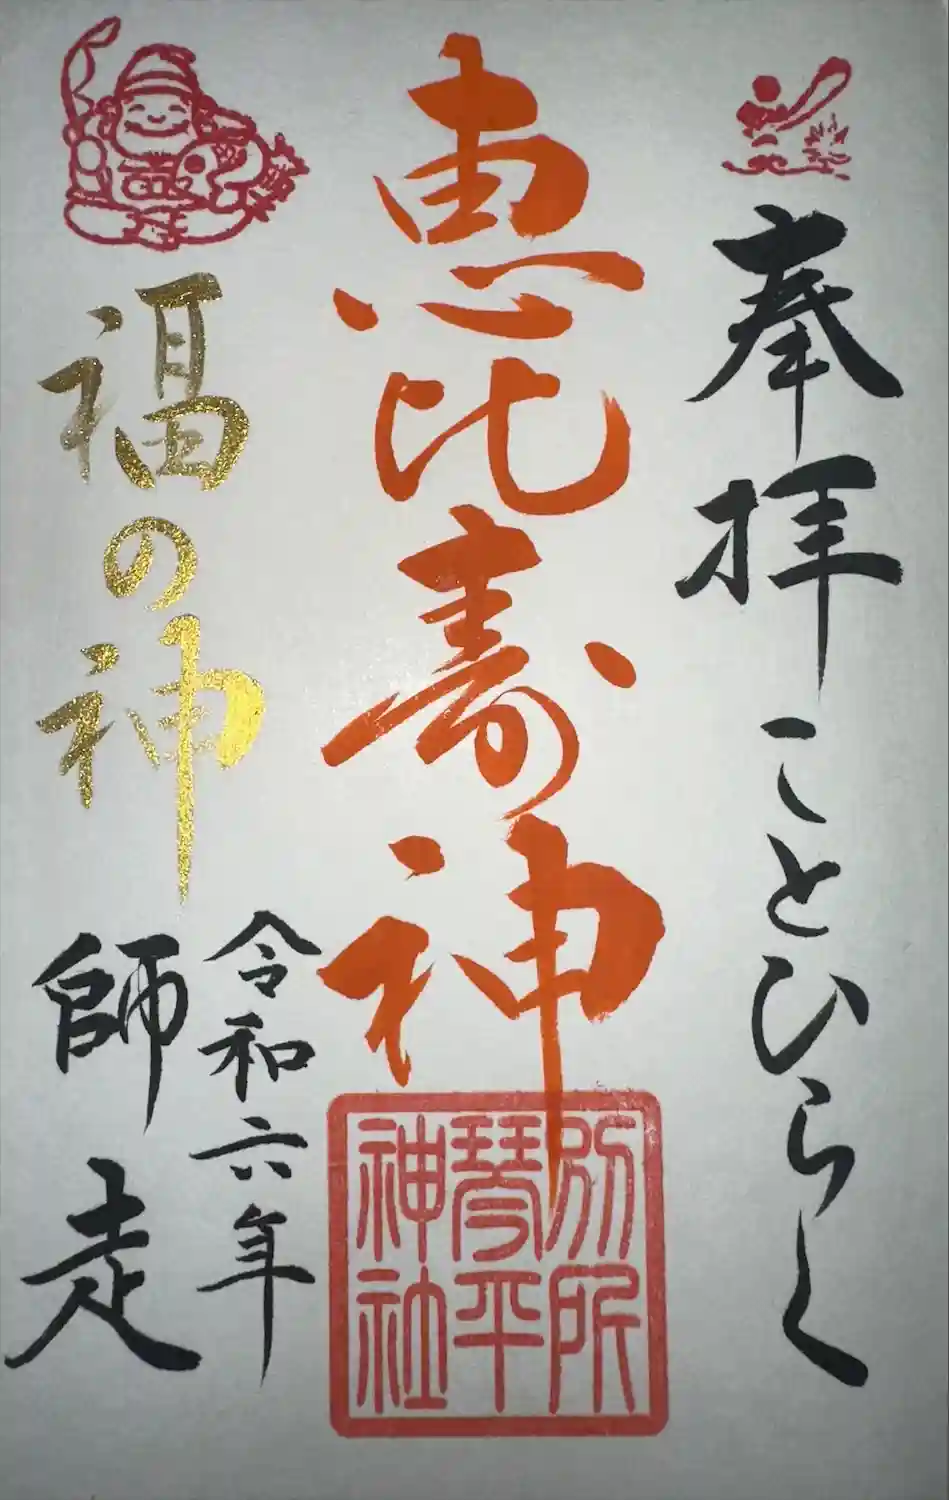 奉拝 ことひらく
恵比寿神
別所
琴平
神社
福の神
令和六年
師走